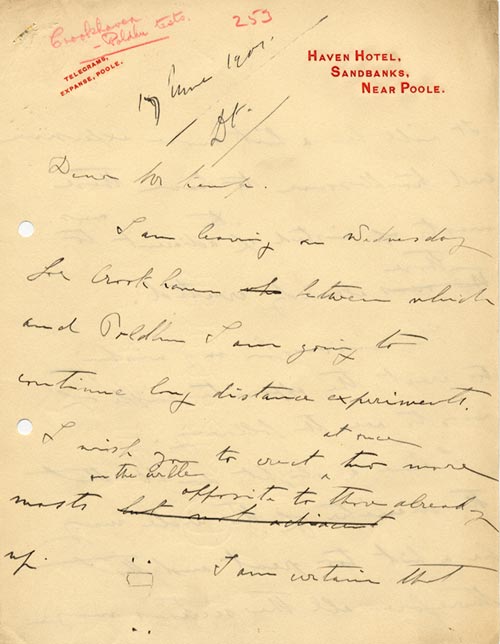 Crookhaven
- Poldhu tests.
253
TELEGRAMS,
EXPANSE, POOLE.
HAVEN HOTEL,
SANDBANKS,
NEAR POOLE.
17 June 1901.
Dear Mr Kemp.
I am leaving on Wednesday
for Crookhaven between which
and Poldhu I am going to
continue long distance experiments.
at once
I wish you to erect ^ two more
on the
opposite to those already
masts but not adjacent
up. I am certain that